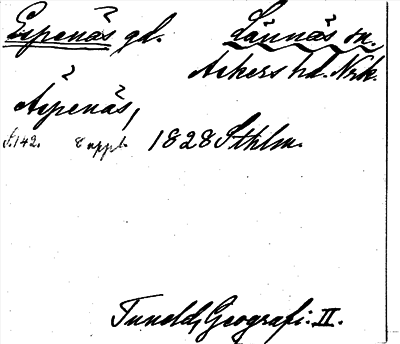 Espenäs gd. Lännäs sn.
Askers hd. Nrk.
Äspenäs,
s. 142. 8 uppl. 1828 Sthlm.
Tuneld, Geografi. II.